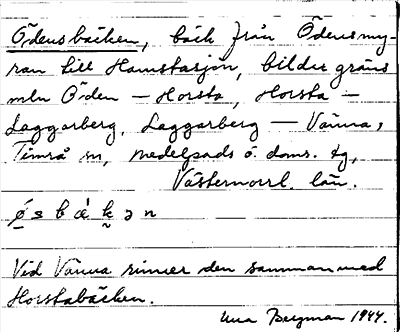 Ödensbäcken, bäck från Ödensmy-
ran till Hamstasjön, bildar gräns
mln Öden – Horsta, Horsta –
Laggarberg, Laggarberg – Vänna,
Timrå sn, Medelpads ö. doms. tg,
Västernorrl. län.
ǿ s b ä́ k ə n
Vid Vänna rinner den samman med
Horstabäcken.
Bergman 1944.